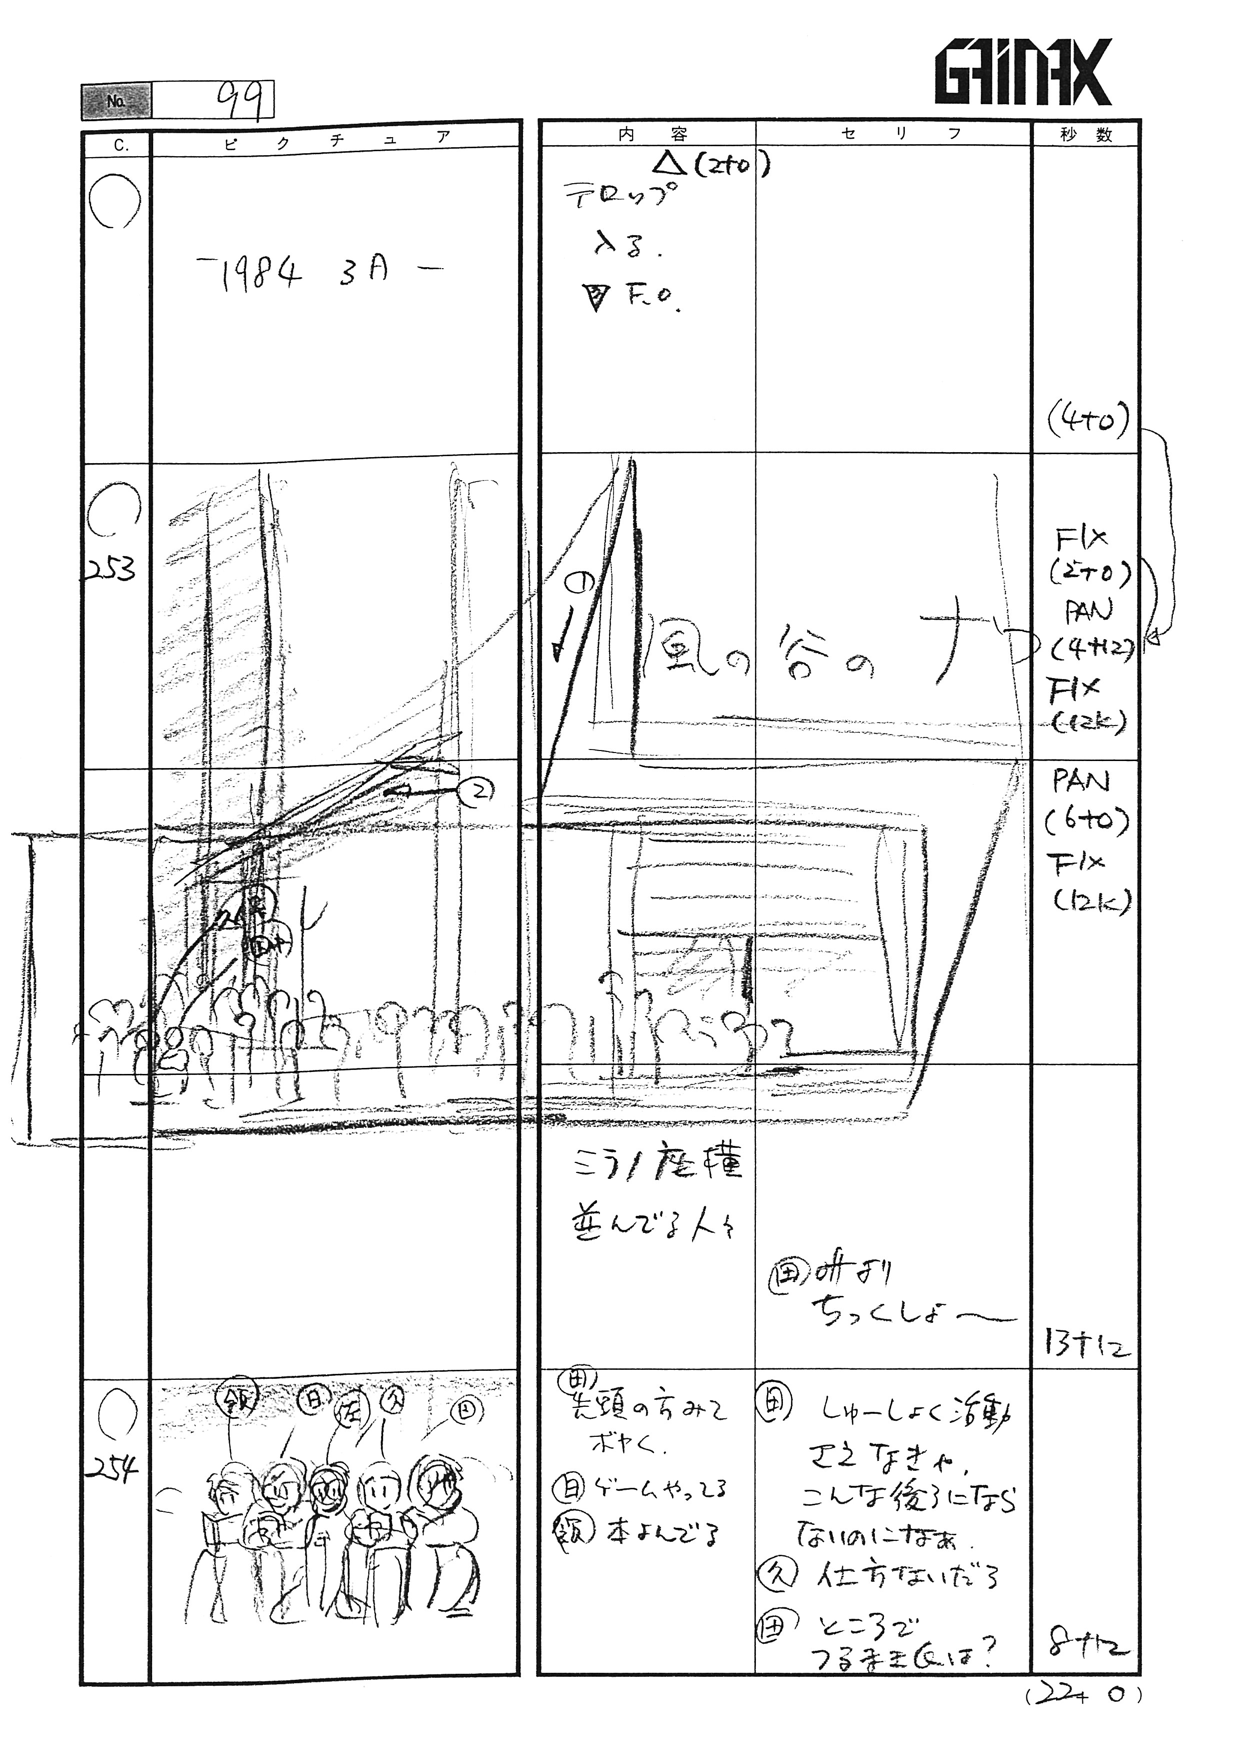 GAINAX
No. 99
C. ピクチュア 内容 セリフ 秒数
△(2+0)
テロップ
入る.
F.O.
-1984 3月-
(4+0)
253
①
風の谷のナ
FIX
(2+0)
PAN
(4+12)
FIX
(12K)
②
PAN
(6+0)
FIX
(12K)
ミラノ座横
並んでる人々
田 ちっくしょ〜
13+12
254
飯 日 佐 久 田
田
先頭の方みて
ボヤく.
日 ゲームやってる
飯 本よんでる
田 しゅーしょく活動
さえなきゃ、
こんな後ろになら
ないのになぁ.
久 仕方ないだろ
田 ところで
つるまき氏は?
8+12
(22+0)